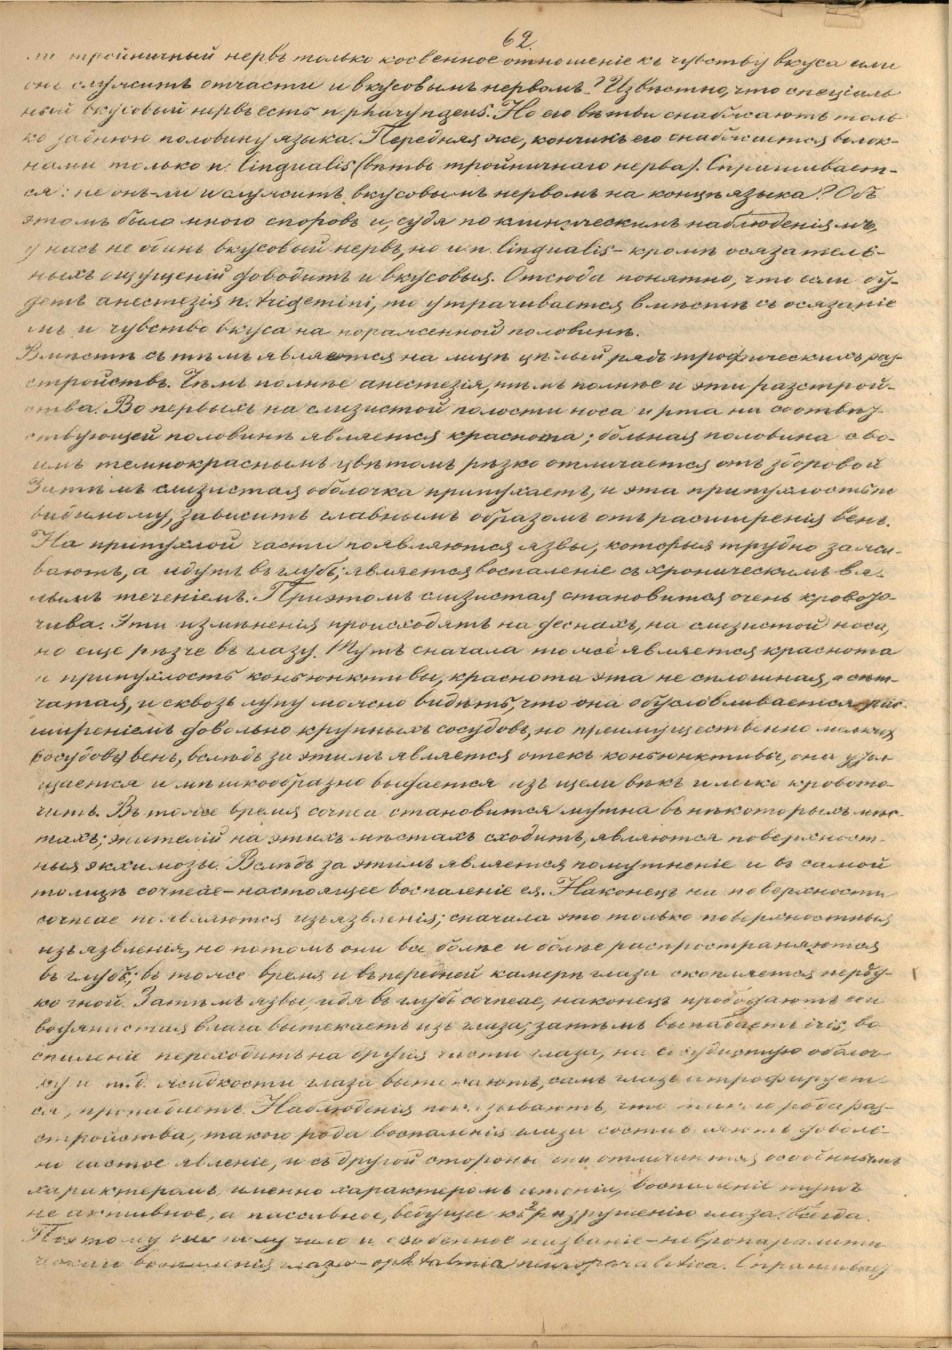 62.
ли тройничный нервъ только косвенное отношеніе къ чувству вкуса или
онъ служитъ отчасти и вкусовымъ нервомъ? Извѣстно, что спеціаль
ный вкусовый нервъ есть n. pharyngeus. Но его вѣтви снабжаютъ толь
ко заднюю половину языка. Передняя же, кончикъ его снабжается волок-
нами только n. lingualis (вѣтвь тройничнаго нерва). Спрашивает-
ся: не онъ-ли и служитъ вкусовымъ нервомъ на концѣ языка? Объ
этомъ было много споровъ и, судя по клиническимъ наблюденіямъ,
у насъ не одинъ вкусовый нервъ, но и n. lingualis - кромѣ осязатель-
ныхъ ощущеній доводитъ и вкусовыя. Отсюда понятно, что если бу-
детъ анестезія n. trigemini, то утрачивается вмѣстѣ съ осязаніе
мъ и чувство вкуса на пораженной половинѣ.
Вмѣстѣ съ тѣмъ является на лицѣ цѣлый рядъ трофическихъ раз-
стройствъ. Чѣмъ полнѣе анестезія, тѣмъ полнѣе и эти разстрой-
ства. Во первыхъ на слизистой полости носа и рта на соотвѣт-
ствующей половинѣ является краснота; больная половина сво-
имъ темнокраснымъ цвѣтомъ рѣзко отличается отъ здоровой
Затѣмъ слизистая оболочка припухаетъ, и эта припухлость по
видимому, зависитъ главнымъ образомъ отъ расширенія венъ.
На припухлой части появляются язвы, которыя трудно зажи-
ваютъ, а идутъ въ глубь; является воспаленіе съ хроническимъ вя-
лымъ теченіемъ. Приэтомъ слизистая становится очень кровото-
чива. Эти измѣненія происходятъ на деснахъ, на слизистой носа,
но еще рѣзче въ глазу. Тутъ сначала тоже является краснота
и припухлость конъюнктивы, краснота эта не сплошная, а сѣт-
чатая, и сквозь лупу можно видѣть, что она обусловливается рас
ширеніемъ довольно крупныхъ сосудовъ, но преимущественно мелкихъ
сосудовъ венъ, вслѣдъ за этимъ является отекъ конъюнктивы, она утол
щается и мѣшкообразно выдается изъ щели вѣкъ и легко кровото-
читъ. Въ тоже время cornea становится мутна въ нѣкоторыхъ мѣс-
тахъ; эпителій на этихъ мѣстахъ сходитъ, являются поверхност-
ныя экхимозы. Вслѣдъ за этимъ является помутненіе и въ самой
толщѣ corneae - настоящее воспаленіе ея. Наконецъ на поверхности
corneae появляются изъязвленія; сначала это только поверхностныя
изъязвленія, но потомъ они все болѣе и болѣе распространяются
въ глубь; въ тоже время и въ передней камерѣ глаза скопляется
гной. Затѣмъ язвы, идя въ глубь corneae, наконецъ прободаютъ ее и
водянистая влага вытекаетъ изъ глаза; затѣмъ выпадаетъ iris, во
спаленіе переходитъ на другія части глаза, на сосудистую оболоч
ку и т.д. жидкости глаза вытекаютъ, самъ глазъ атрофирует-
ся, пропадаетъ. Наблюденія показываютъ, что такого рода раз-
стройства, такого рода воспаленія глаза составляютъ доволь-
но частое явленіе, и съ другой стороны они отличаются особеннымъ
характеромъ, именно характеромъ атоніи, воспаленіе тутъ
не активное, а пассивное, ведущее къ разрушенію глаза всегда.
Поэтому оно получило и особенное названіе - невропаралити
ческаго воспаленія глаза - ophtalmia neuroparalitica. Спрашивает